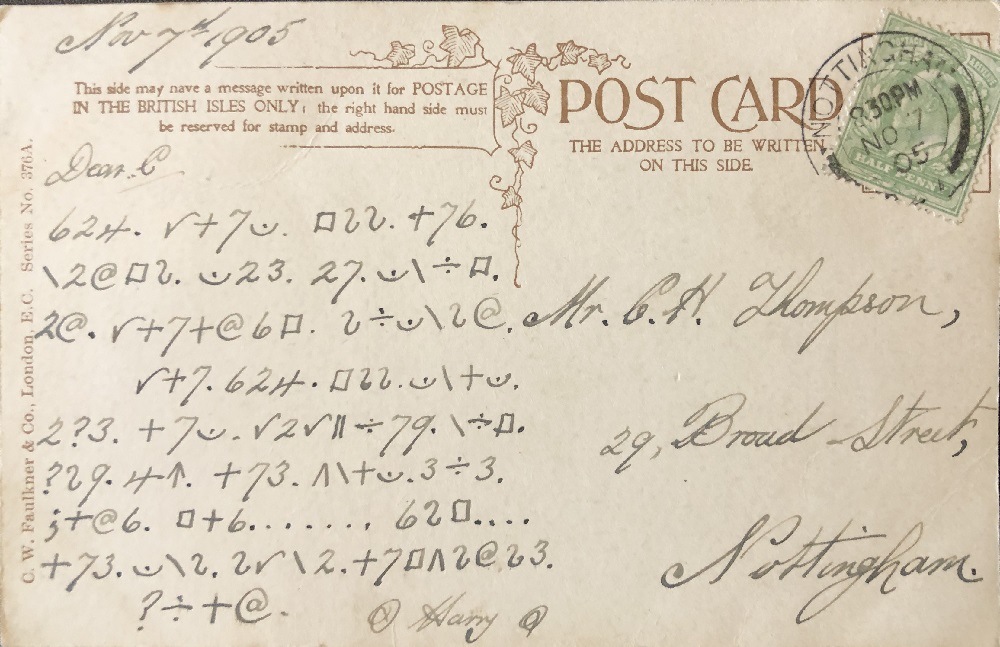 Nov 7th 1905
This side may have a message written upon it for POSTAGE
IN THE BRITISH ISLES ONLY; the right hand side must
be reserved for stamp and address.
POST CARD
THE ADDRESS TO BE WRITTEN
ON THIS SIDE.
NOTTINGHAM
830PM
NO 7
05
HALF PENNY
C. W. Faulkner & Co., London, E.C. Series No. 376A.
Dear C
624. √+7⌣̇. □22. +76.
\2@□2. ⌣̇23. 27. ⌣̇\÷□.
2@. √+7+@6□. 2÷⌣̇\2@.
√+7. 624. □22. ⌣̇\+⌣̇.
2?3. +7⌣̇. √2√‖÷79. \÷□.
?29. 4↑. +73. ∧\+⌣̇. 3÷3.
;+@6. □+6....... 62□....
+73. ⌣̇\2. 2√\2. +7□∧2@23.
?÷+@.
Harry
Mr. C. H. Thompson,
29, Broad Street,
Nottingham.